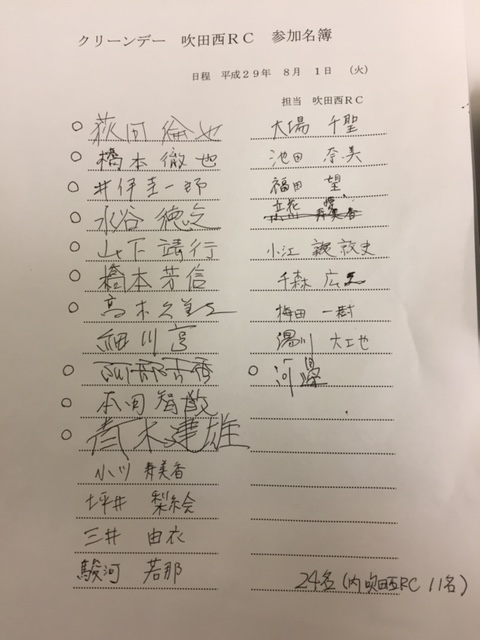 クリーンデー 吹田西RC 参加名簿
日程 平成29年 8月 1日 (火)
担当 吹田西RC
○ 荻田 倫也
○ 橋本 徹也
○ 井伊圭一郎
○ 水谷 徳之
○ 山下 靖行
○ 橋本芳信
○ 高木久美
細川 亨
○ 阿部吉香
○ 本田智敬
○ 青木建雄
小川 舞美香
坪井 梨絵
三井 由衣
駿河 若那
大場 千聖
池田 奈美
福田 望
立花
小江 敦史
千森 広
梅田 一樹
湯川 大
○ 河邊
24名 (内吹田西RC 11名)